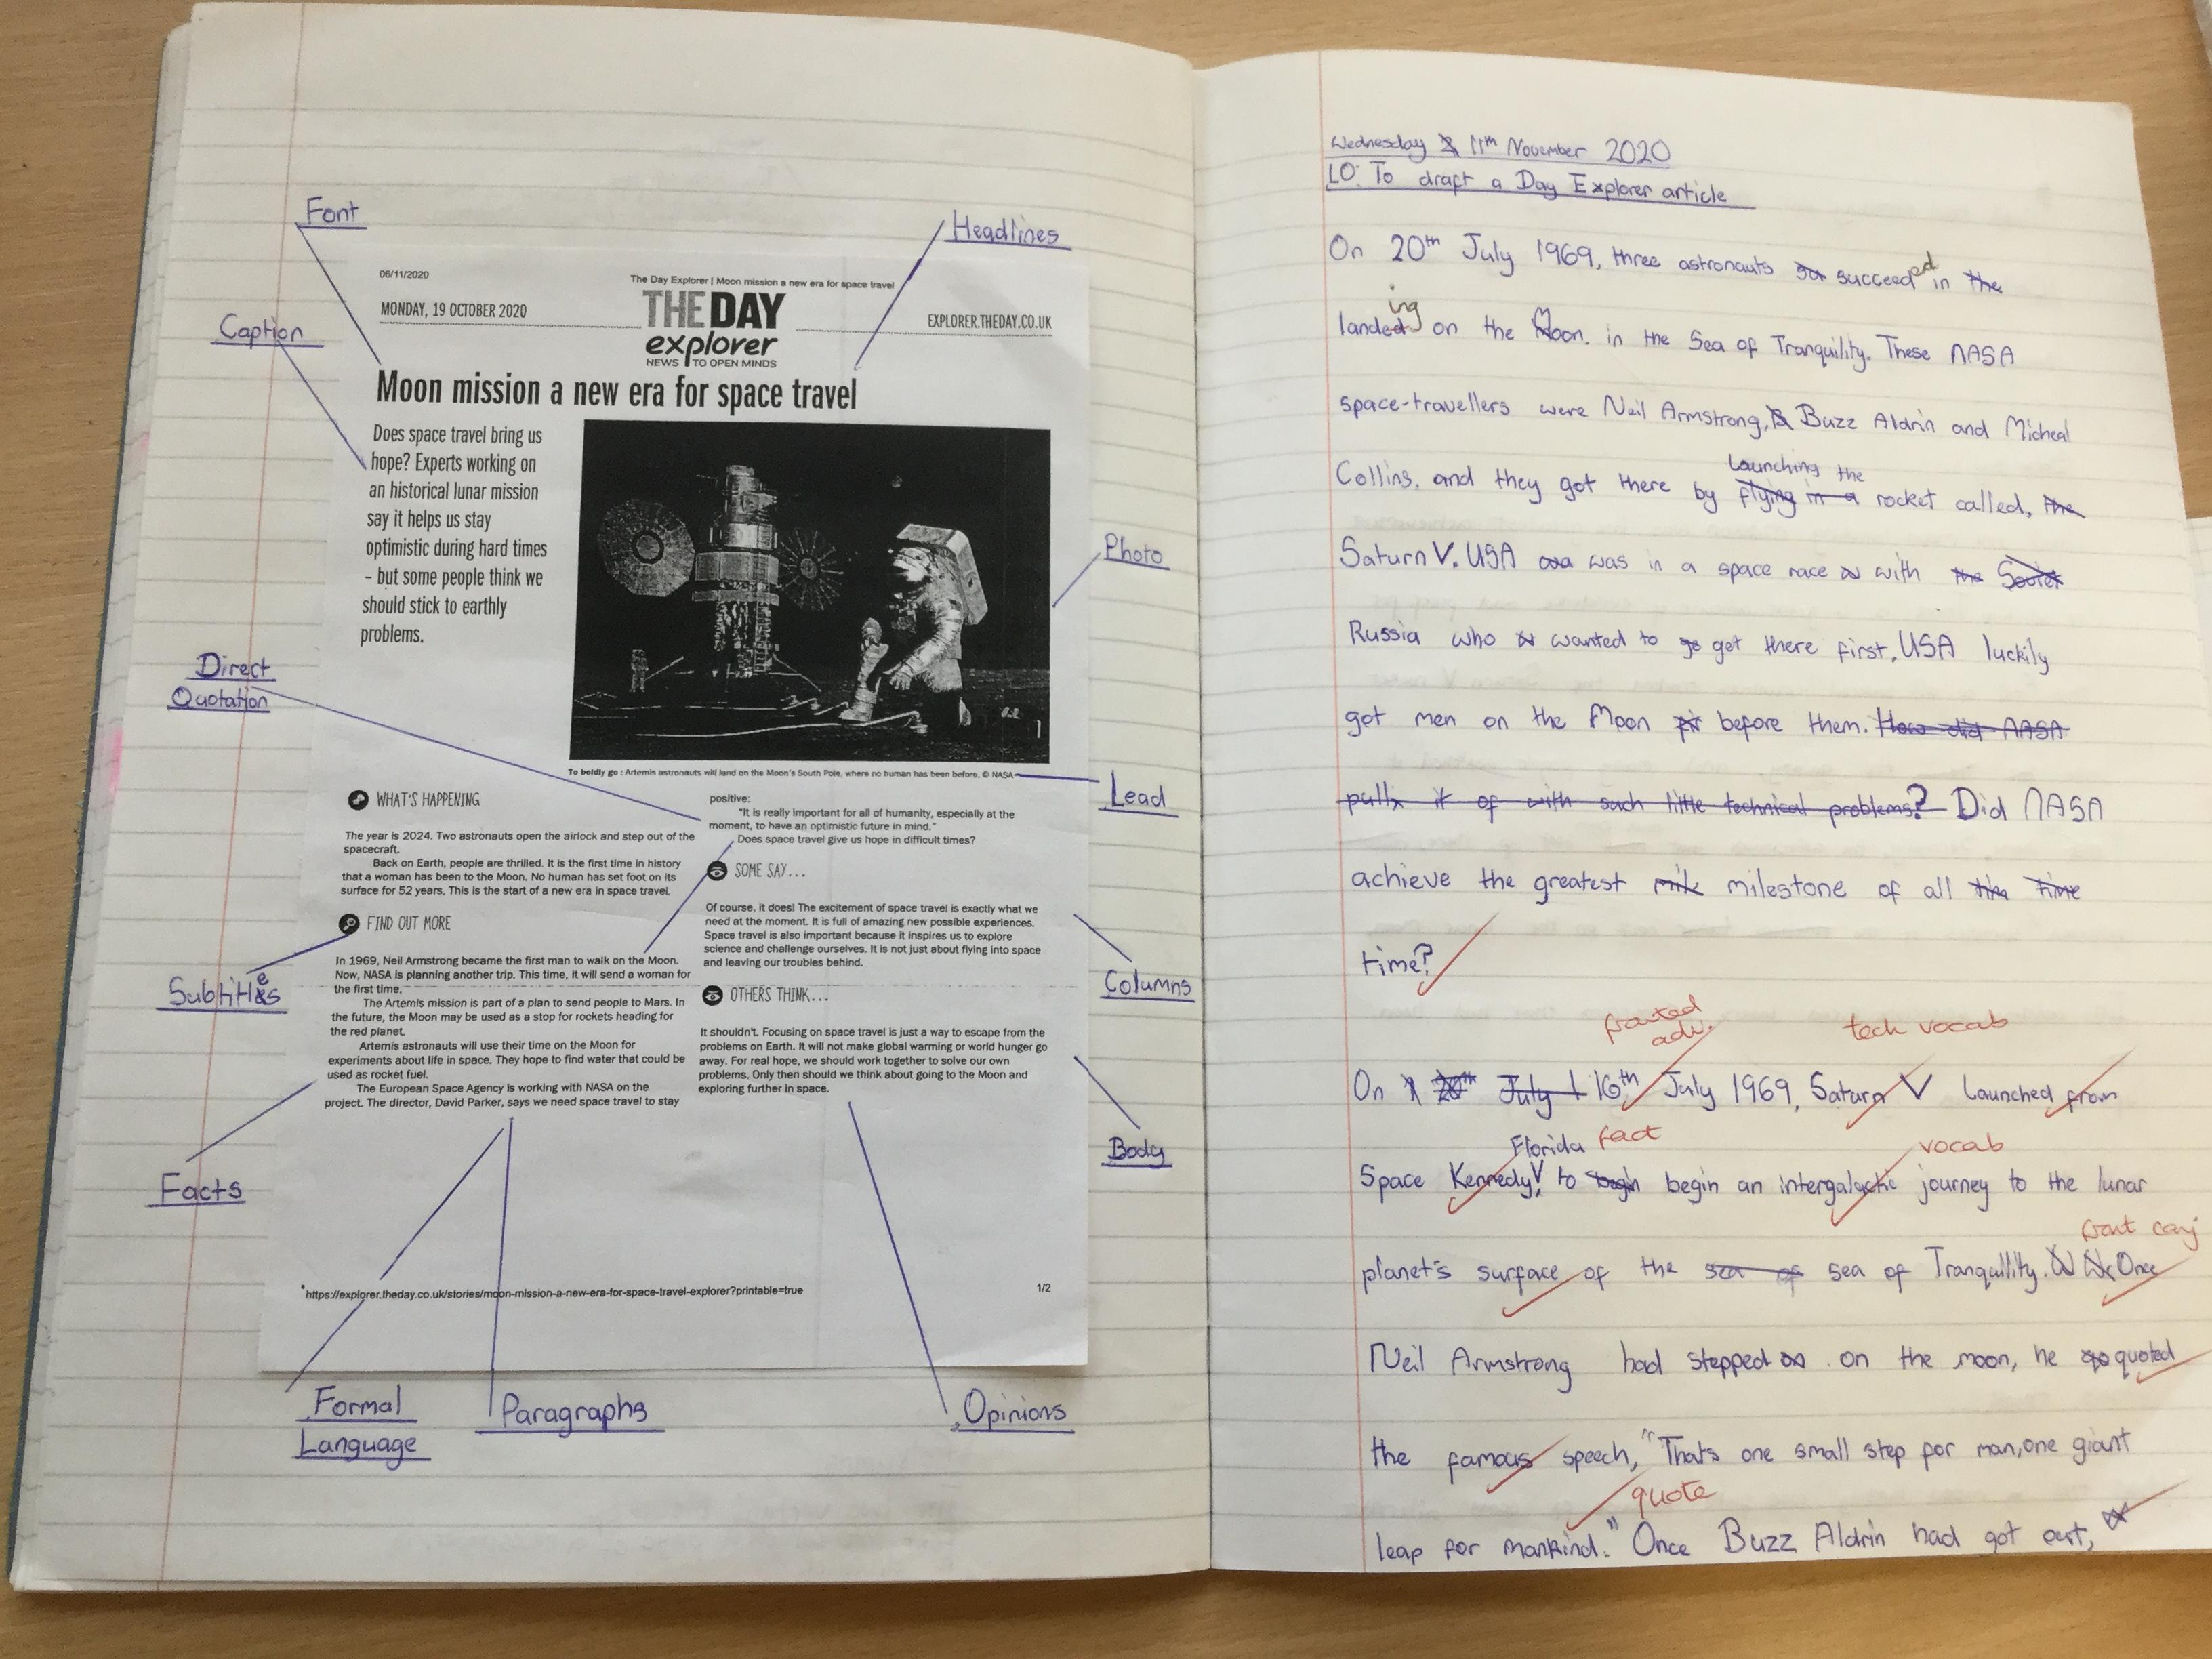 Font
Headlines
Caption
Direct
Quotation
Photo
Lead
Subtitles
Columns
Facts
Body
Formal
Language
Paragraphs
Opinions
06/11/2020
The Day Explorer | Moon mission a new era for space travel
MONDAY, 19 OCTOBER 2020
THE DAY
explorer
NEWS TO OPEN MINDS
EXPLORER.THEDAY.CO.UK
Moon mission a new era for space travel
Does space travel bring us
hope? Experts working on
an historical lunar mission
say it helps us stay
optimistic during hard times
– but some people think we
should stick to earthly
problems.
To boldly go : Artemis astronauts will land on the Moon's South Pole, where no human has been before. © NASA
WHAT'S HAPPENING
The year is 2024. Two astronauts open the airlock and step out of the
spacecraft.
Back on Earth, people are thrilled. It is the first time in history
that a woman has been to the Moon. No human has set foot on its
surface for 52 years. This is the start of a new era in space travel.
FIND OUT MORE
In 1969, Neil Armstrong became the first man to walk on the Moon.
Now, NASA is planning another trip. This time, it will send a woman for
the first time.
The Artemis mission is part of a plan to send people to Mars. In
the future, the Moon may be used as a stop for rockets heading for
the red planet.
Artemis astronauts will use their time on the Moon for
experiments about life in space. They hope to find water that could be
used as rocket fuel.
The European Space Agency is working with NASA on the
project. The director, David Parker, says we need space travel to stay
positive:
"It is really important for all of humanity, especially at the
moment, to have an optimistic future in mind."
Does space travel give us hope in difficult times?
SOME SAY...
Of course, it does! The excitement of space travel is exactly what we
need at the moment. It is full of amazing new possible experiences.
Space travel is also important because it inspires us to explore
science and challenge ourselves. It is not just about flying into space
and leaving our troubles behind.
OTHERS THINK...
It shouldn't. Focusing on space travel is just a way to escape from the
problems on Earth. It will not make global warming or world hunger go
away. For real hope, we should work together to solve our own
problems. Only then should we think about going to the Moon and
exploring further in space.
https://explorer.theday.co.uk/stories/moon-mission-a-new-era-for-space-travel-explorer?printable=true
1/2
Wednesday 11th November 2020
LO: To draft a Day Explorer article
On 20th July 1969, three astronauts succeeded in the
landing on the Moon. in the Sea of Tranquility. These NASA
space-travellers were Neil Armstrong, Buzz Aldrin and Micheal
launching the
Collins. and they got there by flying in a rocket called, the
Saturn V. USA was in a space race with the Soviet
Russia who wanted to get there first. USA luckily
got men on the Moon before them. How did NASA
pull it of with such little technical problems? Did NASA
achieve the greatest milestone of all time
time?
fronted
adv.
tech vocab
On 20th July 16th July 1969, Saturn V Launched from
Florida fact vocab
Space Kennedy, to begin an intergalactic journey to the lunar
front conj
planet's surface of the sea of sea of Tranquillity. Once
Neil Armstrong had stepped on the moon, he quoted
the famous speech, "Thats one small step for man, one giant
quote
leap for mankind." Once Buzz Aldrin had got out,